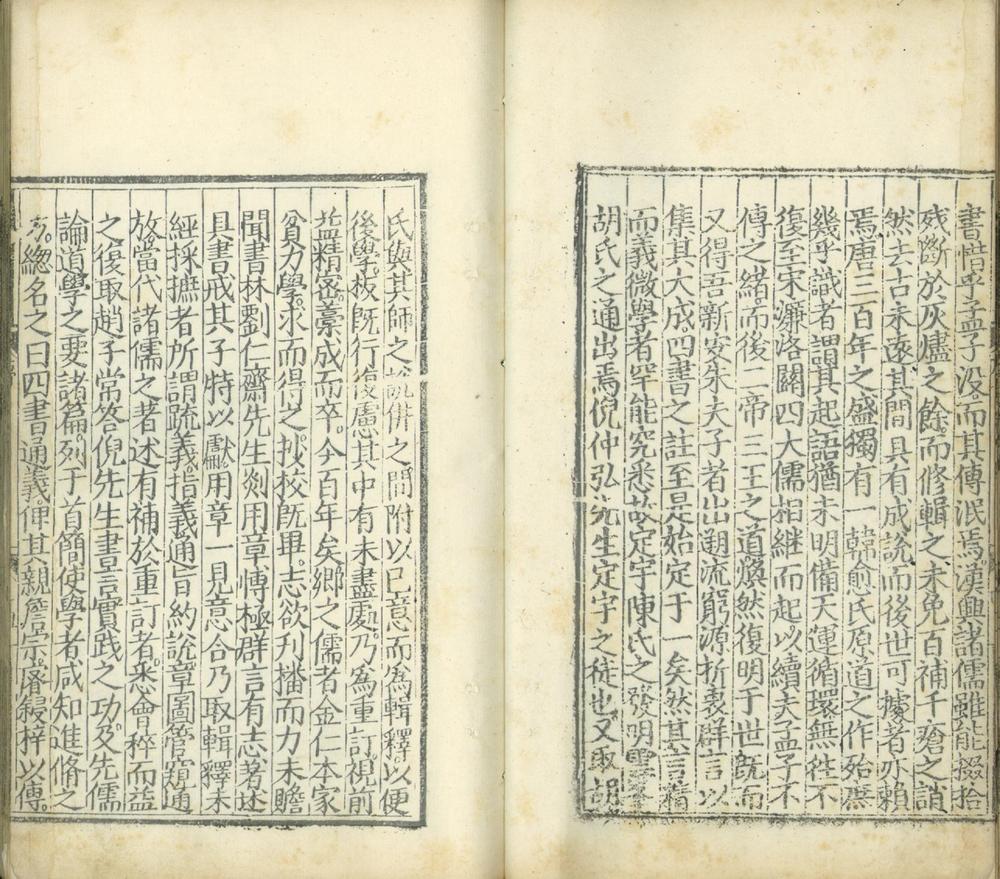 書惜乎孟子沒而其傳泯焉漢興諸儒雖能掇拾
殘斷於灰燼之餘而修輯之未免百補千瘡之誚
然去古未遠其間具有成說而後世可據者亦賴
焉唐三百年之盛獨有一韓愈氏原道之作殆庶
幾乎識者謂其起語猶未明備天運循環無徃不
復至宋濂洛關四大儒相繼而起以續夫孟子不
傳之緒而後二帝三王之道煥然復明于世旣而
又得吾新安朱夫子者出遡流窮源折衷群言以
集其大成四書之註至是始定于一矣然其言精
而義微學者罕能究悉故定宇陳氏之發明雲峯
胡氏之通出焉倪仲弘先生定宇之徒也又取胡
氏與其師之說倂之間附以已意而為輯釋以便
後學板旣行後慮其中有未盡處乃為重訂視前
益精密藁成而卒今百年矣鄉之儒者金仁本家
貧力學求而得之抄校旣畢志欲刋播而力未贍
聞書林劉仁齋先生剡用章慱極群言有志著述
具書戒其子特以獻用章一見意合乃取輯釋未
經採摭者所謂䟽義指義通旨約說章圖管窺通
放當代諸儒之著述有補於重訂者悉會稡而益
之復取趙子常答倪先生書言實践之功及先儒
論道學之要諸篇列于首簡使學者咸知進脩之
方總名之曰四書通義俾其親詹宗睿鋟梓以傳